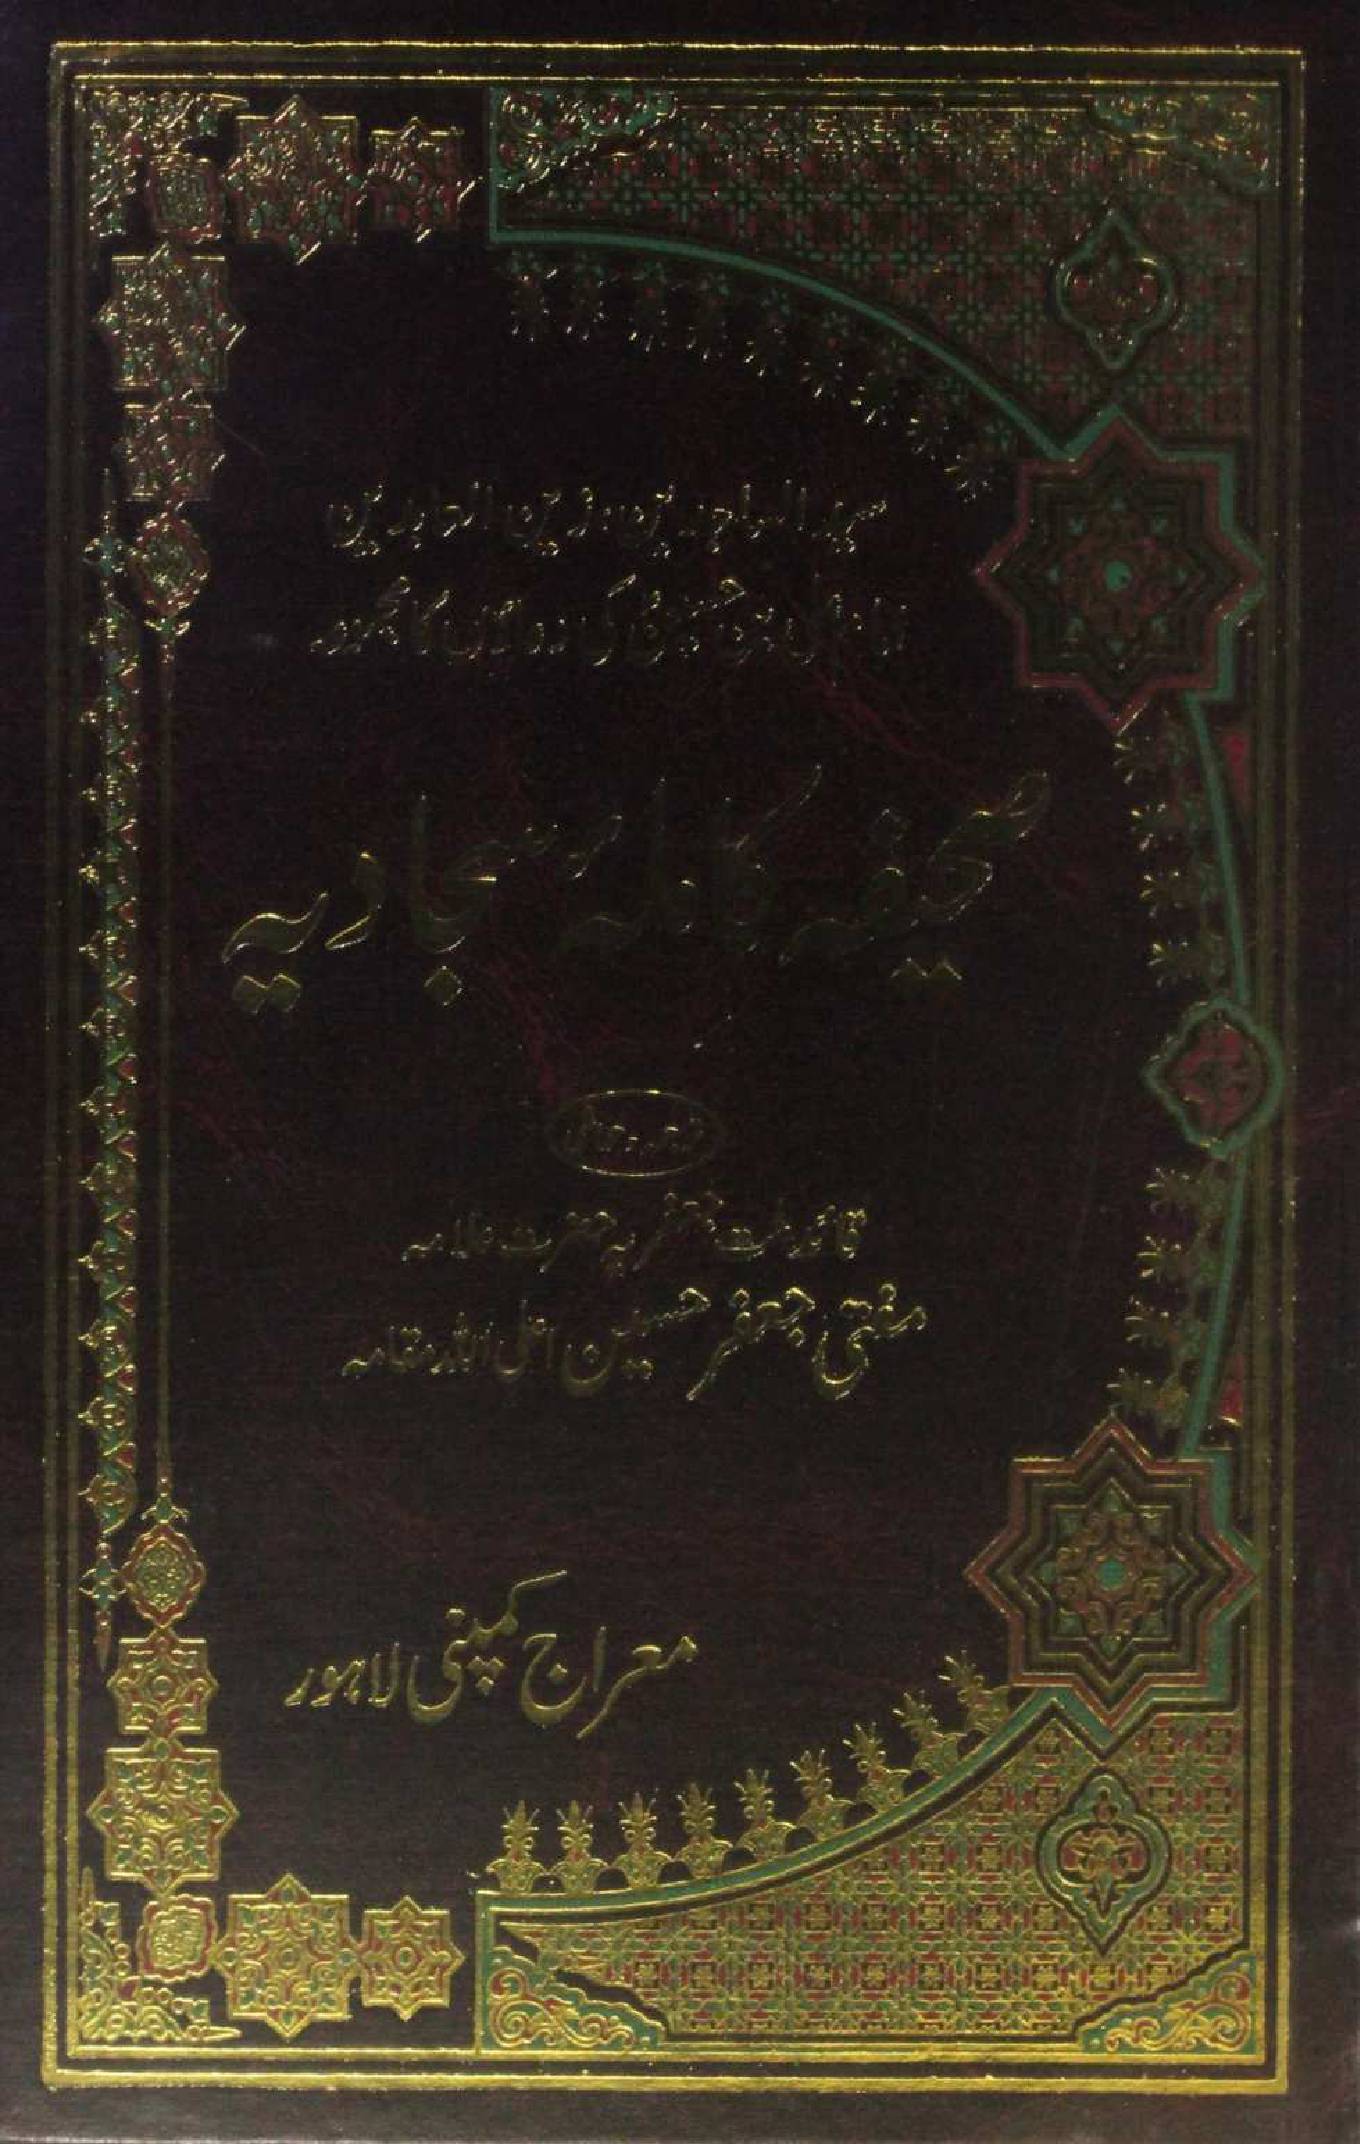 سید الساجدین، زین العابدین
امام علی بن حسین کی دعاؤں کا مجموعہ
صحیفہ کاملہ سجادیہ
قائد ملت جعفریہ حضرت علامہ
مفتی جعفر حسین اعلی اللہ مقامہ
معراج کمپنی لاہور